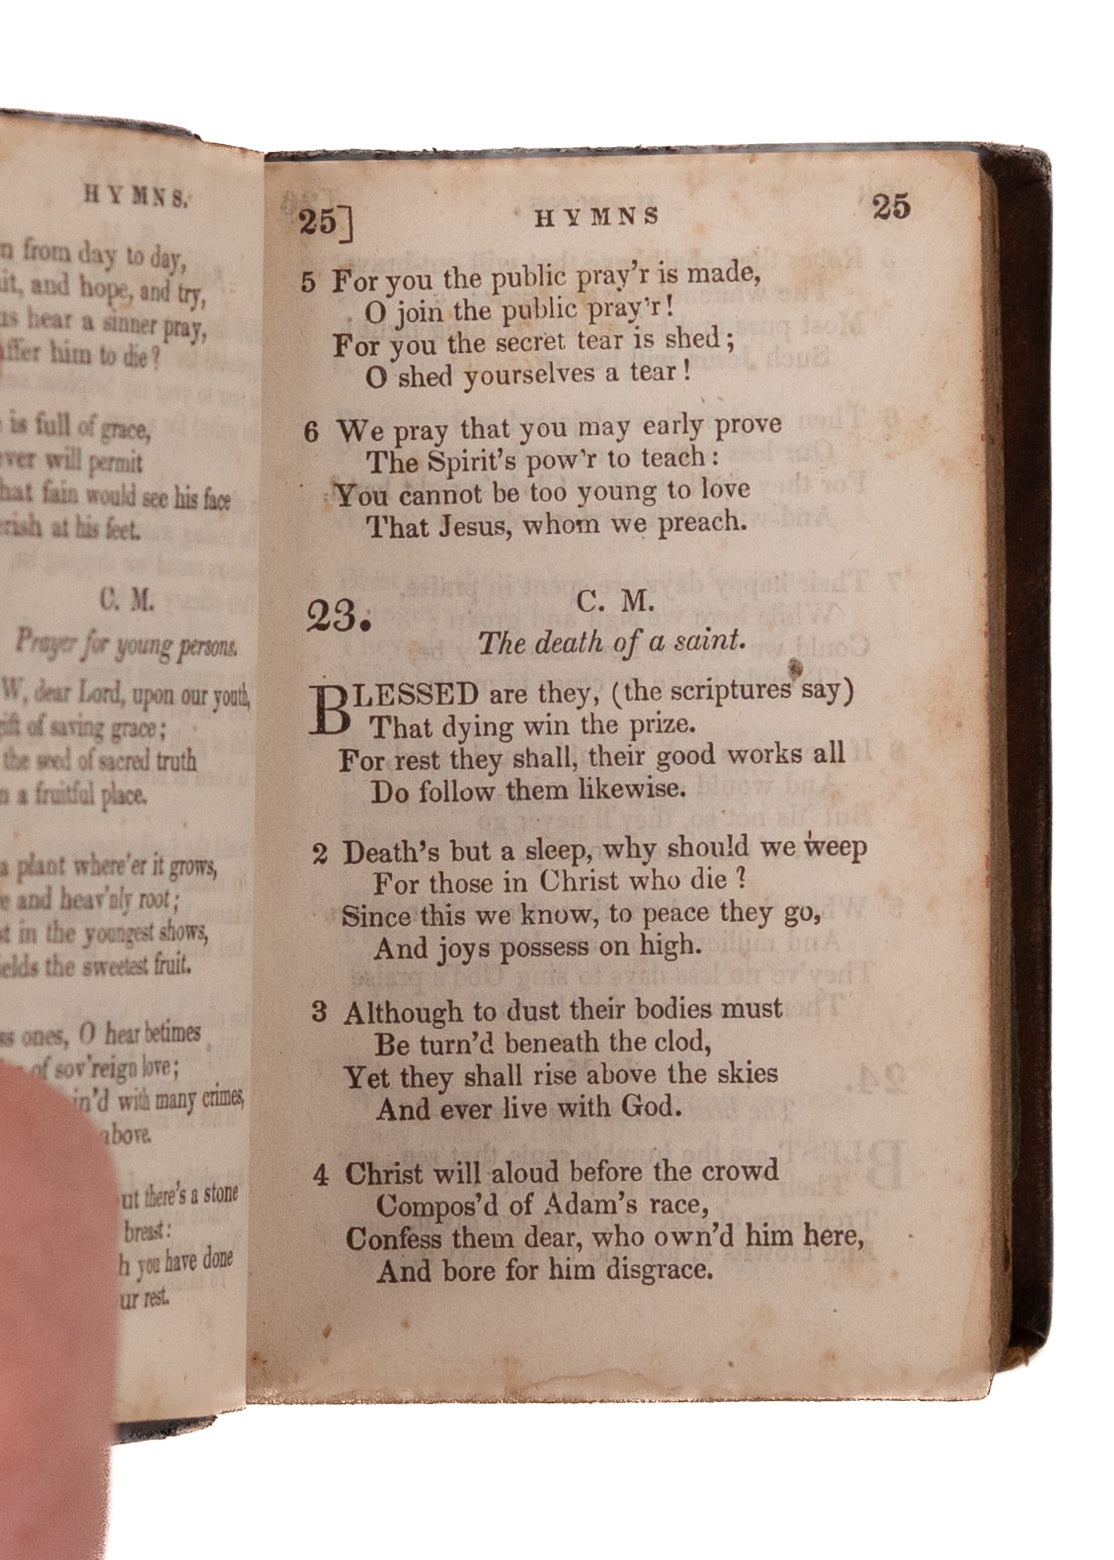 HYMNS.
from day to day,
and hope, and try,
hear a sinner pray,
him to die?
is full of grace,
will permit
fain would see his face
at his feet.
C. M.
Prayer for young persons.
dear Lord, upon our youth,
of saving grace;
the seed of sacred truth
a fruitful place.
a plant where'er it grows,
and heav'nly root;
in the youngest shows,
the sweetest fruit.
ones, O hear betimes
of sov'reign love;
with many crimes,
above.
there's a stone
breast:
you have done
rest.
25] HYMNS 25
5 For you the public pray'r is made,
O join the public pray'r!
For you the secret tear is shed;
O shed yourselves a tear!
6 We pray that you may early prove
The Spirit's pow'r to teach:
You cannot be too young to love
That Jesus, whom we preach.
23. C. M.
The death of a saint.
BLESSED are they, (the scriptures say)
That dying win the prize.
For rest they shall, their good works all
Do follow them likewise.
2 Death's but a sleep, why should we weep
For those in Christ who die?
Since this we know, to peace they go,
And joys possess on high.
3 Although to dust their bodies must
Be turn'd beneath the clod,
Yet they shall rise above the skies
And ever live with God.
4 Christ will aloud before the crowd
Compos'd of Adam's race,
Confess them dear, who own'd him here,
And bore for him disgrace.